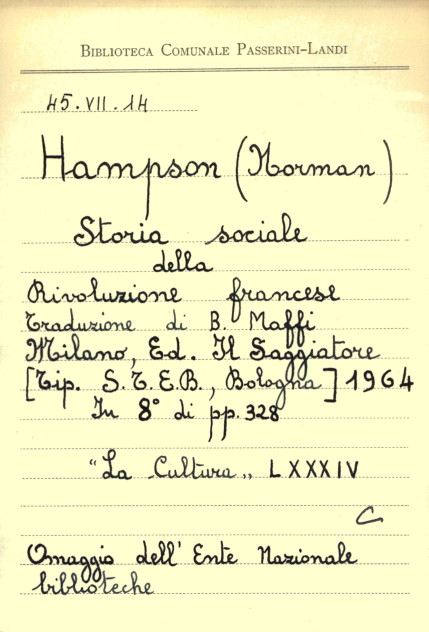 BIBLIOTECA COMUNALE PASSERINI-LANDI
45.VII.14
Hampson (Norman)
Storia sociale
della
Rivoluzione francese
Traduzione di B. Maffi
Milano, Ed. Il Saggiatore
[Tip. S.T.E.B., Bologna] 1964
In 8° di pp. 328
"La Cultura„ LXXXIV
C
Omaggio dell' Ente Nazionale
biblioteche